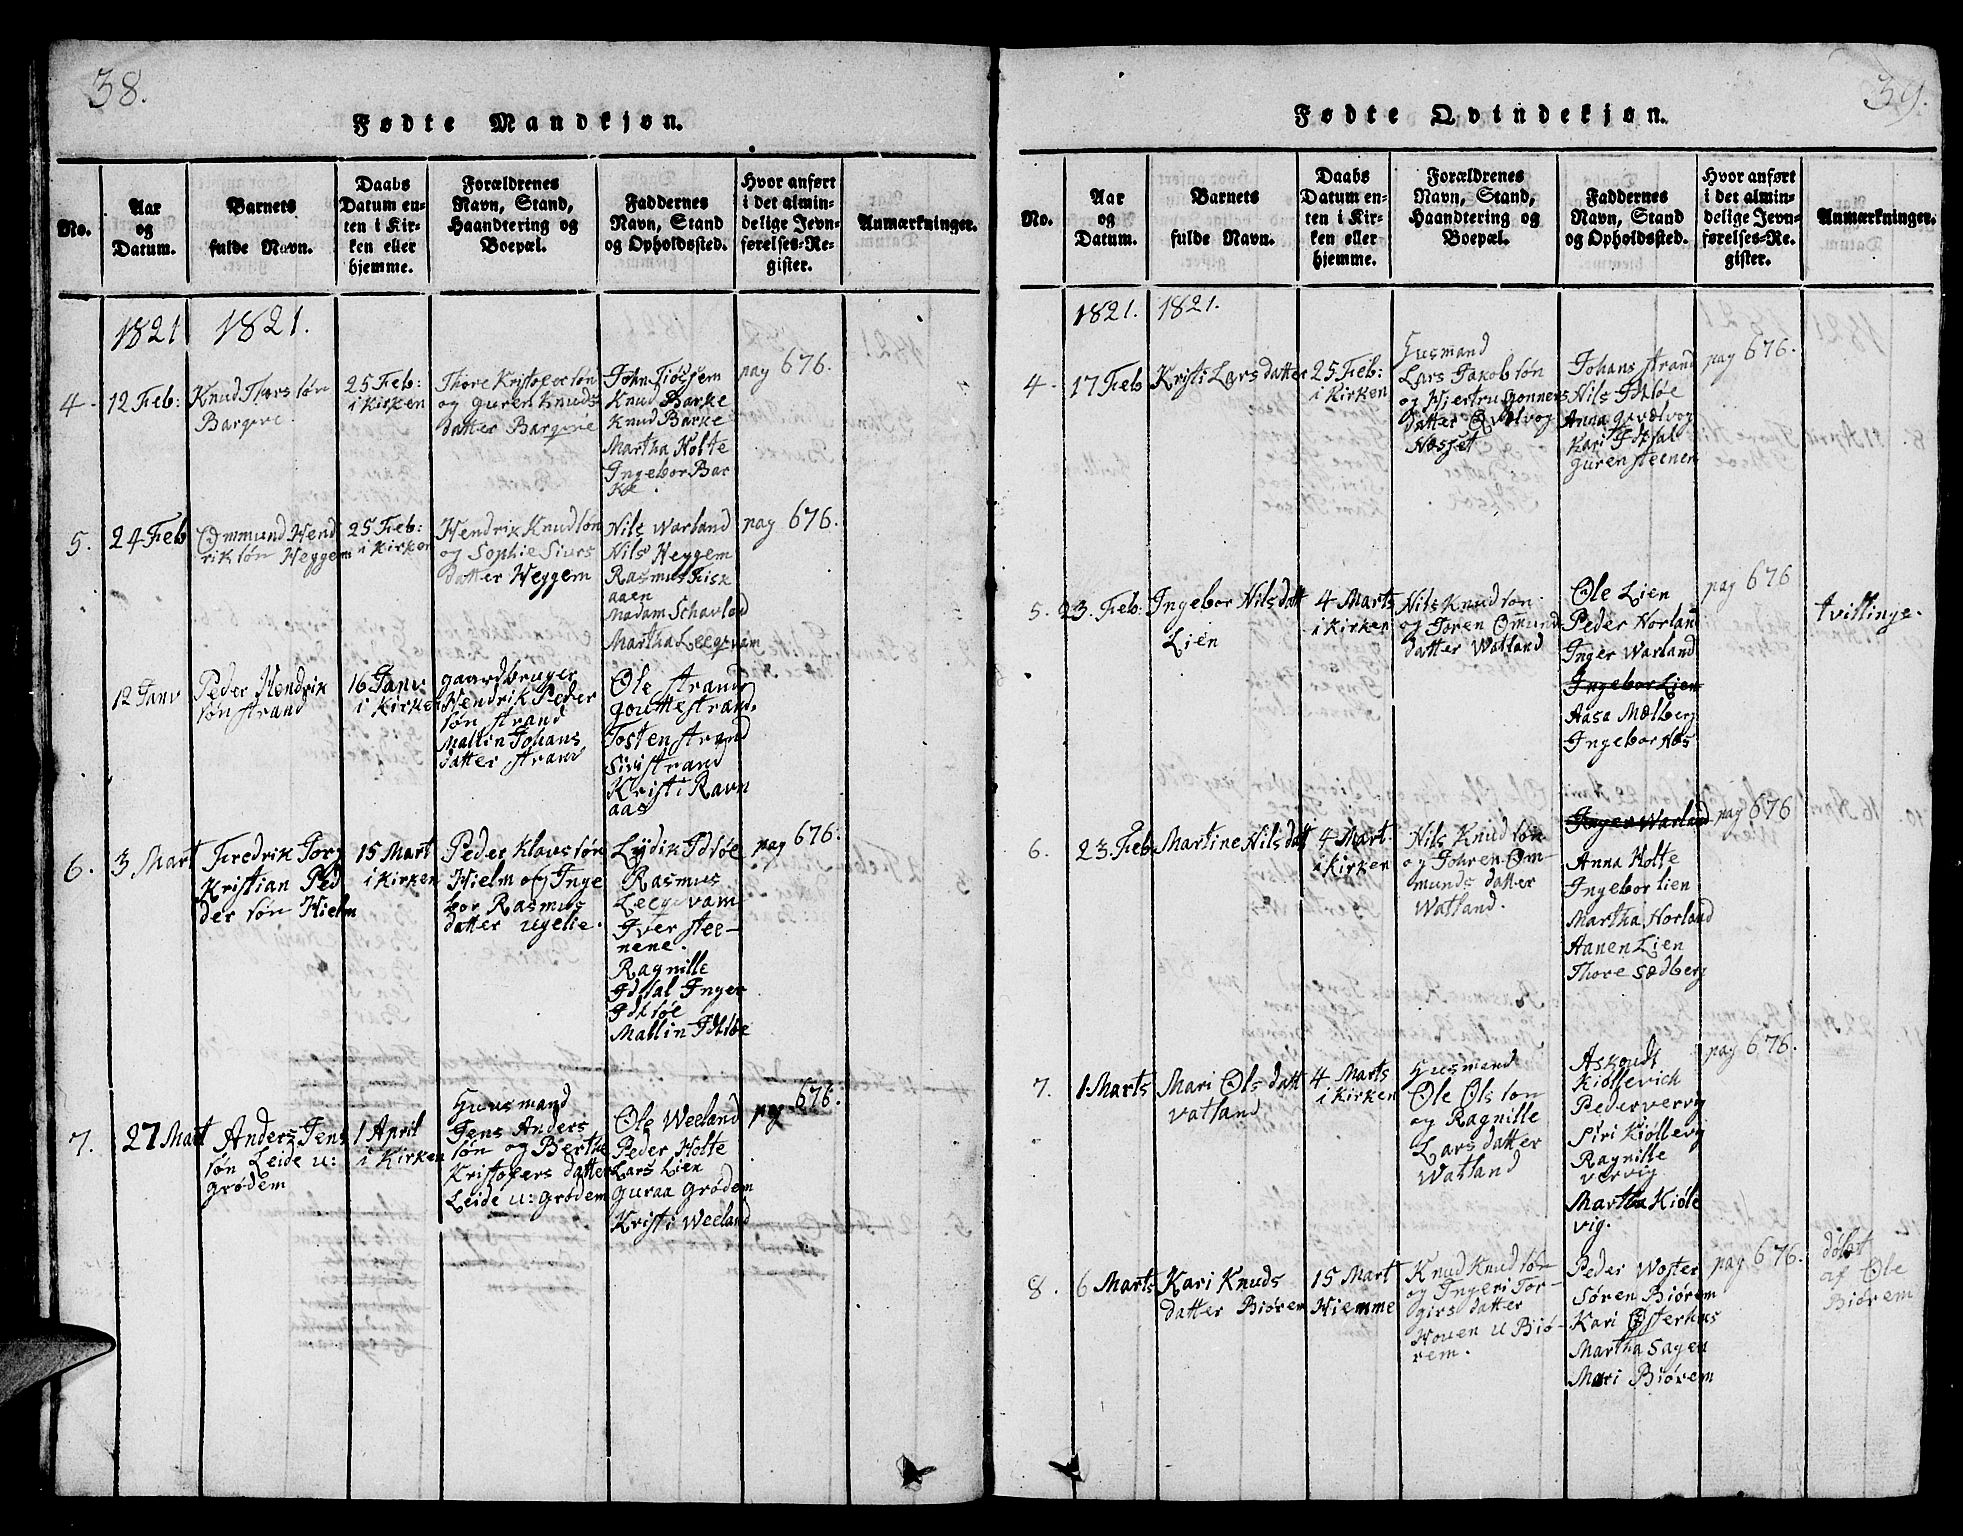 38.
Fødte Mandkjøn.
No.
Aar
og
Datum.
Barnets
fulde Navn.
Daabs
Datum en-
ten i Kir-
ken eller
hjemme.
Forældrenes
Navn, Stand,
Haandtering og
Boepæl.
Faddernes
Navn, Stand
og Opholdssted.
Hvor anført
i det almin-
delige Jevn-
førelses-Re-
gister.
Anmærkninger.
1821
1821.
4.
12 Feb:
Knud Thorssøn
25 Feb:
i Kirken
Thore Kristofersøn
og guren Knuds
datter
Knud Barke
Knud Barke
Martha Holte
Ingebor Bar
ke.
pag 676.
5.
24 Feb
Ommund Hend
riksøn Heggem
25 Feb:
i Kirken
Hendrik Knudsøn
og Sophie Siurs
datter Heggem
Nils Warland
Nils Heggem
Rasmus Fisk
aaen
Madam Schavlad
Martha Leeqvam
pag 676.
12 Janv
Peder Hendrik
søn strand
16 Janv
i Kirken
gaardbruger
Hendrik Peder
søn strand
Mallin Johans
datter strand
Ole strand
goutte strand.
Tosten strand
Siri strand
Kristi Ravn
aas
6.
3 Mart
Fredrik Jorg
Kristian Ped
der søn Hielm
15 Mart
i Kirken
Peder Klavssøn
Hielm og Inge
bor Rasmus
datter ugelie.
Lydik Idsøe
Rasmus
Leeqvam
Iver stee-
nene.
Ragnille
Idsal Inger
Idsøe
Mallin Idsøe
pag 676.
7.
27 Mart
Anders Jens
søn Leide u:
grødem
1 April
i Kirken
Huusmand
Jens Anders
søn og Berthe
Kristofers datter
Leide u: grødem
Ole Weeland
Peder Holte
Lars Lien
Guraa Grødem
Kristi Weeland
pag 676.
39.
Fødte Qvindekjøn.
No.
Aar
og
Datum.
Barnets
fulde Navn.
Daabs
Datum en-
ten i Kir-
ken eller
hjemme.
Forældrenes
Navn, Stand,
Haandtering og
Boepæl.
Faddernes
Navn, Stand
og Opholdssted.
Hvor anført
i det almin-
delige Jevn-
førelses-Re-
gister.
Anmærkninger.
1821.
1821.
4.
17 Feb
Kristi Larsdatter
25 Feb:
i Kirken
Husmand
Lars Jakobsøn
og Hjertru Gonners
datter Qvalvog
Næsset
Johans strand
Nils Idsøe
Anna Qvalvog
Kari Idsal
guren steenen
pag 676.
5.
23. Feb:
Ingebor Nilsdatt
Lien
4 Marts
i Kirken
Nils Knudsøn
og Joren Omund
datter Watland
Ole Lien
Peder Horland
Inger Warland
Ingebor Lien
Aasa Mælberg
Ingebor Næs
pag 676
tvillinge.
6.
23. Feb
Martine Nilsdatt
4 Mart
i Kirken
Nils Knudsøn
og Johren Om
munds datter
Watland.
Inger Warland
Anna Holte
Ingebor Lien
Martha Horland
Aanen Lien
Thore Sædberg
pag 676
7.
1 Marts
Mari Ols datt
vatland
4 Marts
i Kirken
Husmand
Ole Olssøn
og Ragnille
Lars datter
Watland
Askoudt
Kiøllevich
Peder vervig
Siri Kiøllevig
Ragnille
vervig
Martha Kiøle
vig.
pag 676.
8.
6 Marts
Kari Knuds
datter Biørem
15 Mart
Hiemme
Knud Knudsøn
og Ingeri Tor-
girs datter
Houen u Biø-
rem.
Peder Woster
Søren Biørem
Kari Østerhus
Martha Sagen
Mari Biørem
pag 676.
døbt
af Ole
Biørem